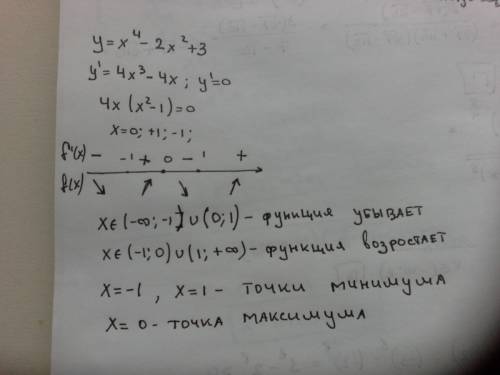 y = x⁴ - 2x² + 3
y' = 4x³ - 4x ; y' = 0
4x (x² - 1) = 0
x = 0; +1; -1;
f'(x) - -1 + 0 - 1 +
f(x) ↘ ↗ ↘ ↗
x ∈ (-∞; -1) ∪ (0; 1) - функция убывает
x ∈ (-1; 0) ∪ (1; +∞) - функция возростает
x = -1 , x = 1 - точки минимума
x = 0 - точка максимума